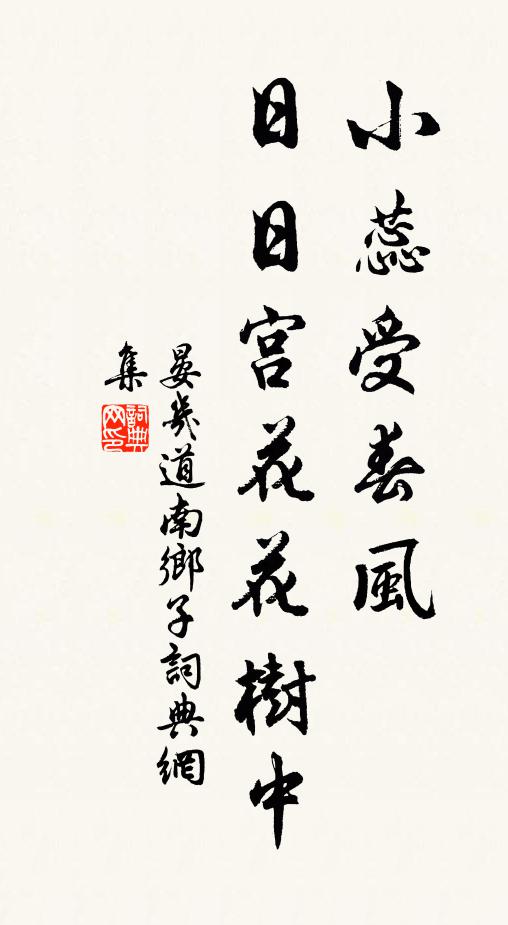 小蕊受春風
日日宮花花樹中
晏幾道南鄉子詞典網
集
詞典網印